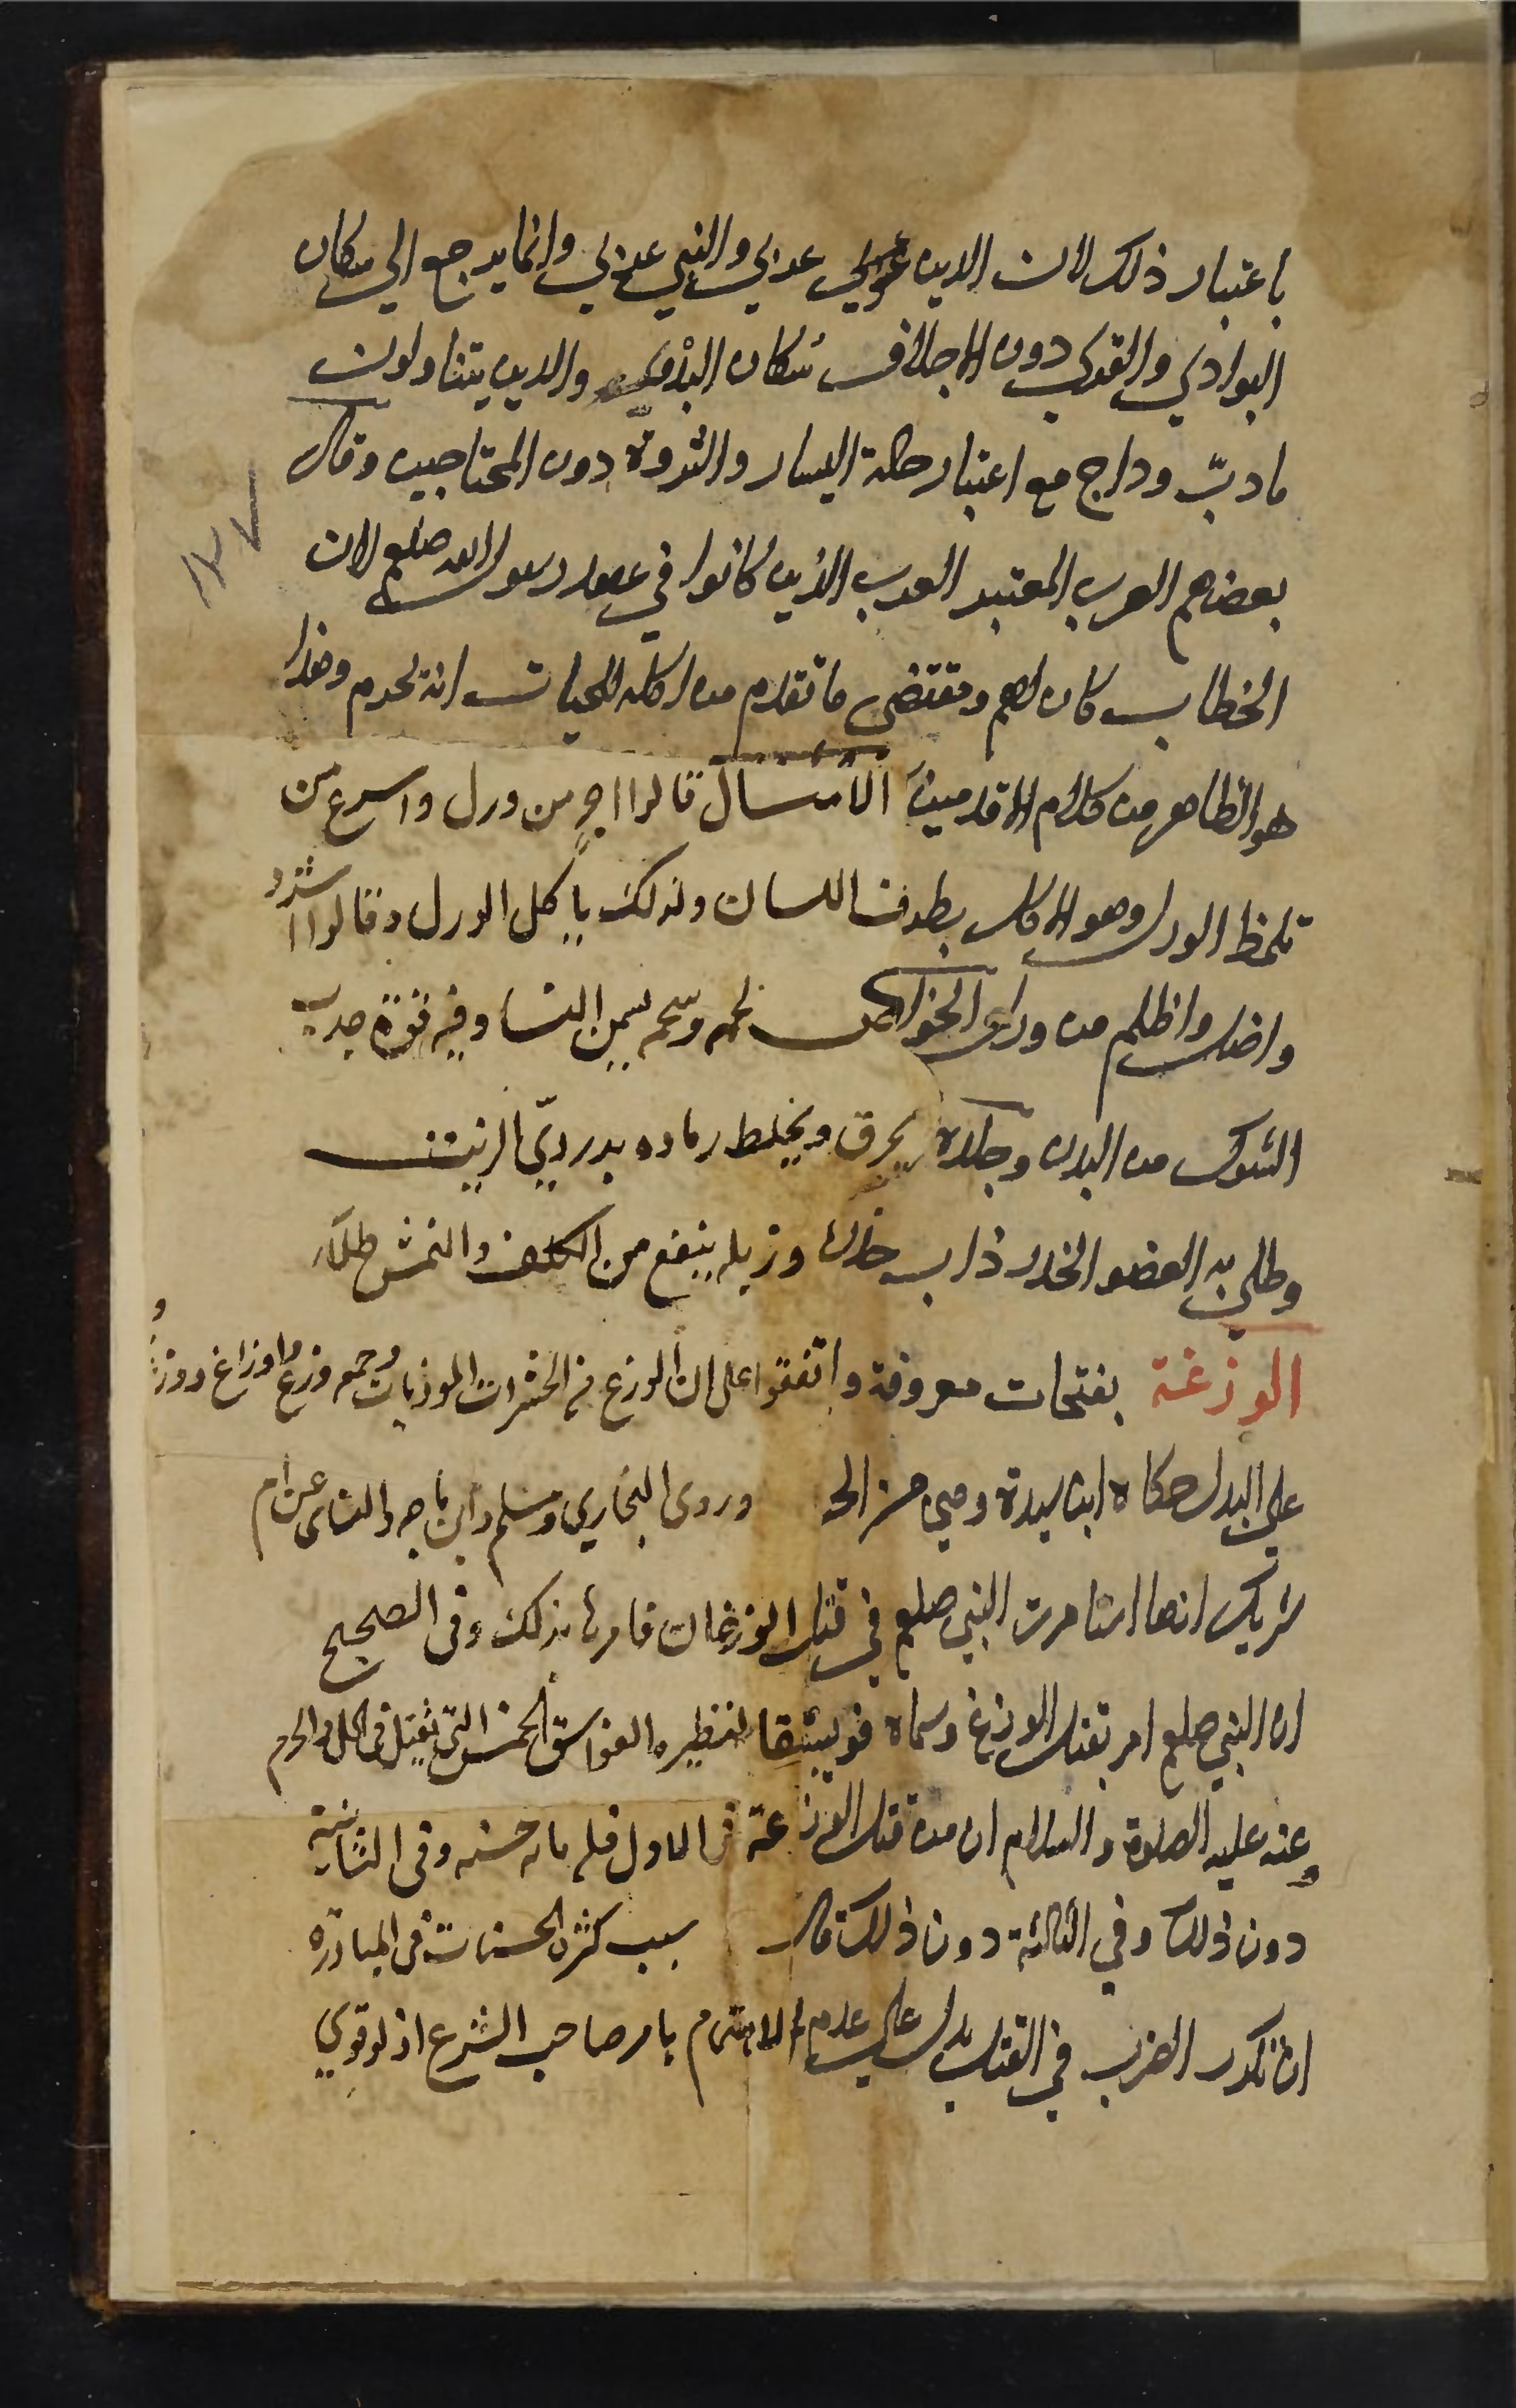 باعتبار ذلك لان الدين عربي والنبي عربي وانما يرجع الي سكان
البوادي والقري دون الاجلاف سُكان البَوادي والدين يتناولون
ما دبّ وداج مع اعتبار حالة اليسار والثروة دون المحتاجين وقال
بعضهم العرب المعتبر العرب الذين كانوا في عهد رسول الله صلعم لان
الخطاب كان لهم ومقتضى ما تقدم من اكله للحيات انه يحرم وهذا
هو الظاهر من كلام الاقدمين الامثال قالوا اجبن من ورل واسرع من
تلمظ الورل وهو الاكل بطرف اللسان ولذلك ياكل الورل وقالوا اشرد
واضل واظلم من ورل الخواص لحمه وشحمه يسمن النسا وفيه قوة جذب
الشوك من البدن وجلده يحرق ويخلط رماده بدرديّ الزيت
وطلي به العضو الخدر ذاب خدره وزبله ينفع من الكلف والنمش طلآء
الوزغة بفتحات معروفة واتفقوا على ان الوزغ من الحشرات الموذيات وجمعه وزغ واوزاغ ووز
على البدل حكاه ابن سيدة وروى البخاري ومسلم وابن ماجه والنساى عن ام
شريك انها استامرت النبي صلعم في قتل الوزغان فامرها بذلك وفى الصحيح
ان النبي صلعم امر بقتل الوزغ وسماه فويسقا نظيره الفواسق الخمس التى تقتل فى الحل والحرم
وعنه عليه الصلوة والسلام ان من قتل الوزغة فى الاول فله مائه حسنه وفى الثانية
دون ذلك وفي الثالثة دون ذلك قال سبب كثرة الحسنات فى المبادره
ان تكرر الضرب في القتل يدل على عدم الاهتمام بامر صاحب الشرع اذ لو قوي